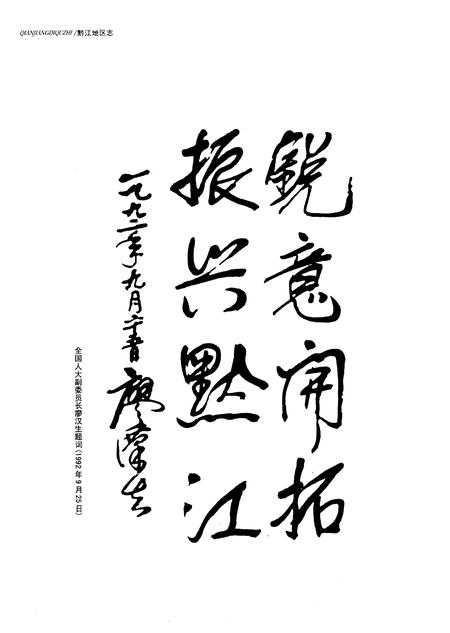 QIANJIANGDIQUZHI/黔江地区志
锐意开拓
振兴黔江
一九九二年九月二十五日 廖汉生
全国人大副委员长廖汉生题词(1992年9月25日)